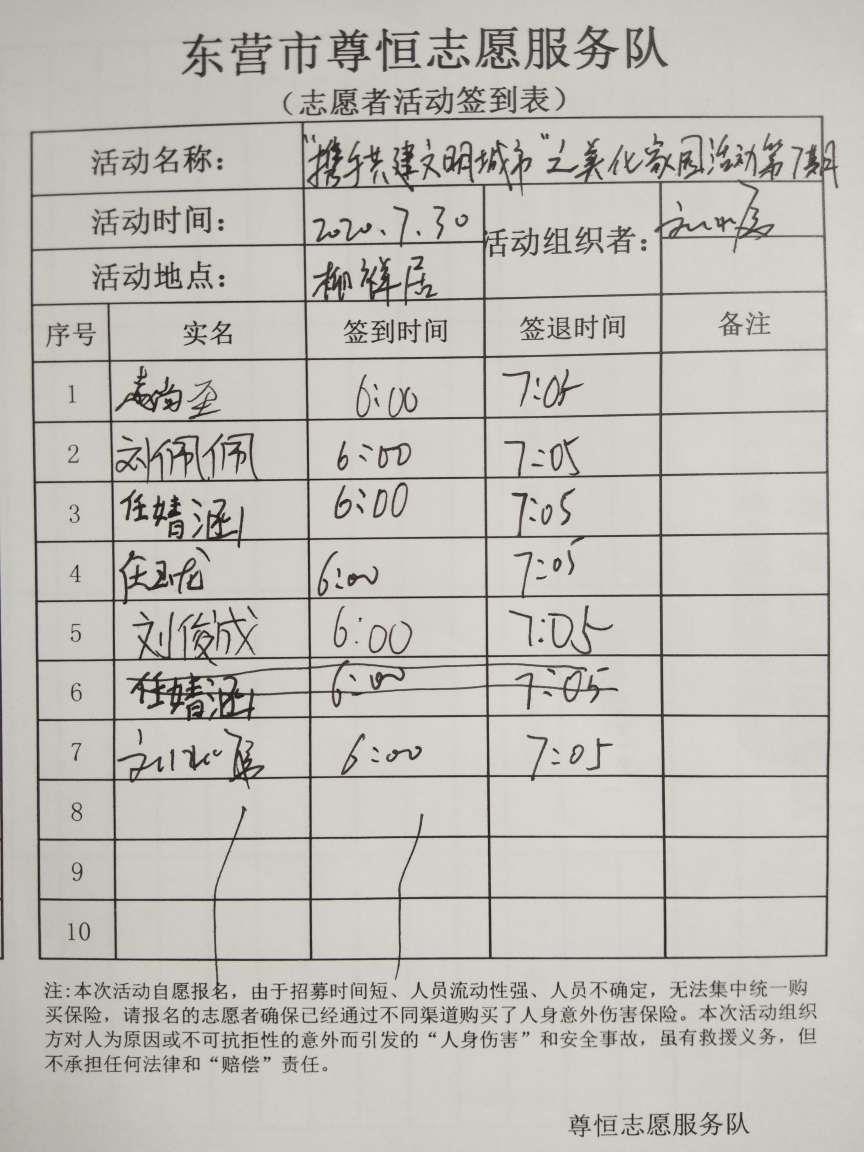 东营市尊恒志愿服务队
（志愿者活动签到表）
活动名称： “携手共建文明城市”之美化家园活动第7期
活动时间： 2020.7.30 活动组织者：
活动地点： 柳祥居
序号 实名 签到时间 签退时间 备注
1 6:00 7:05
2 刘佩佩 6:00 7:05
3 任婧涵 6:00 7:05
4 任玉龙 6:00 7:05
5 刘俊成 6:00 7:05
6 任婧涵 6:00 7:05
7 6:00 7:05
8
9
10
注:本次活动自愿报名，由于招募时间短、人员流动性强、人员不确定，无法集中统一购
买保险，请报名的志愿者确保已经通过不同渠道购买了人身意外伤害保险。本次活动组织
方对人为原因或不可抗拒性的意外而引发的“人身伤害”和安全事故，虽有救援义务，但
不承担任何法律和“赔偿”责任。
尊恒志愿服务队